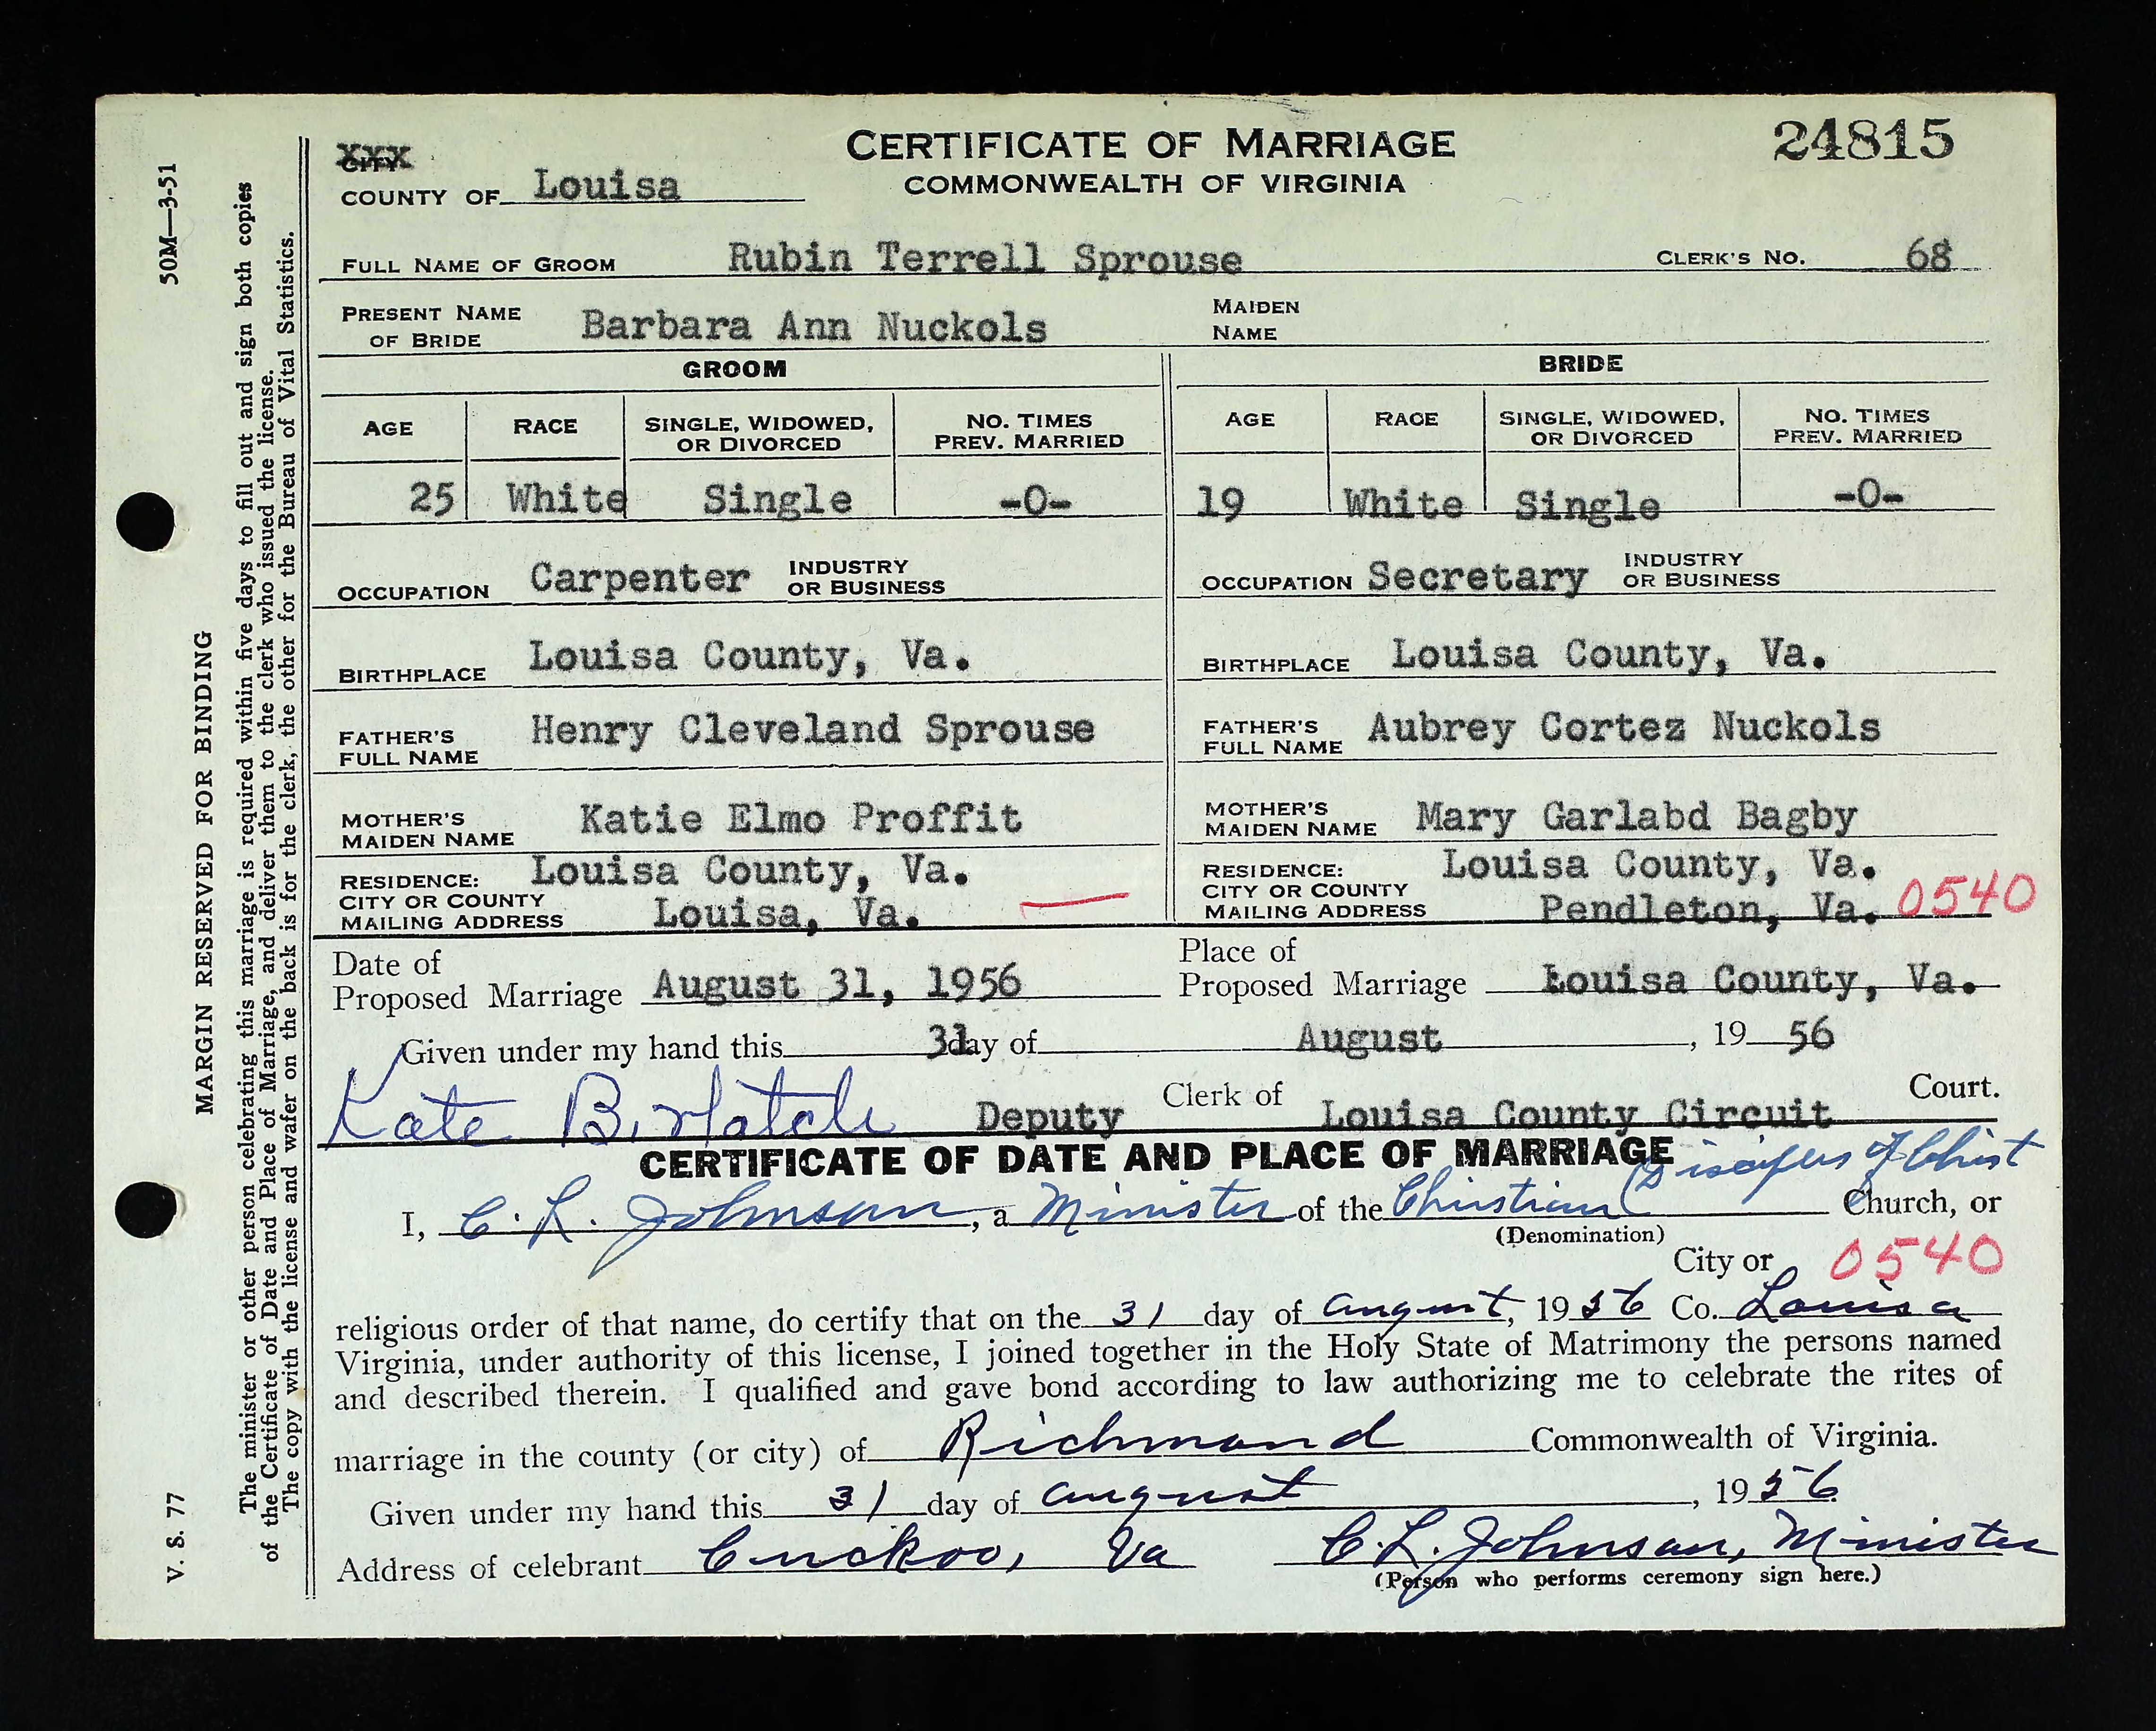 CERTIFICATE OF MARRIAGE
COMMONWEALTH OF VIRGINIA
24815
XXX
CITY
COUNTY OF Louisa
FULL NAME OF GROOM Rubin Terrell Sprouse CLERK'S NO. 68
PRESENT NAME OF BRIDE Barbara Ann Nuckols MAIDEN NAME
GROOM BRIDE
AGE RACE SINGLE, WIDOWED, OR DIVORCED NO. TIMES PREV. MARRIED AGE RACE SINGLE, WIDOWED, OR DIVORCED NO. TIMES PREV. MARRIED
25 White Single -0- 19 White Single -0-
OCCUPATION Carpenter INDUSTRY OR BUSINESS OCCUPATION Secretary INDUSTRY OR BUSINESS
BIRTHPLACE Louisa County, Va. BIRTHPLACE Louisa County, Va.
FATHER'S FULL NAME Henry Cleveland Sprouse FATHER'S FULL NAME Aubrey Cortez Nuckols
MOTHER'S MAIDEN NAME Katie Elmo Proffit MOTHER'S MAIDEN NAME Mary Garlabd Bagby
RESIDENCE: CITY OR COUNTY Louisa County, Va. RESIDENCE: CITY OR COUNTY Louisa County, Va.
MAILING ADDRESS Louisa, Va. MAILING ADDRESS Pendleton, Va. 0540
Date of Proposed Marriage August 31, 1956 Place of Proposed Marriage Louisa County, Va.
Given under my hand this 31 day of August, 19 56
Kate B. Deputy Clerk of Louisa County Circuit Court.
CERTIFICATE OF DATE AND PLACE OF MARRIAGE
I, C. L. Johnson, a Minister of the Christian (Disciples of Christ Church, or
(Denomination)
City or 0540
religious order of that name, do certify that on the 31 day of August, 1956 Co. Louisa
Virginia, under authority of this license, I joined together in the Holy State of Matrimony the persons named
and described therein. I qualified and gave bond according to law authorizing me to celebrate the rites of
marriage in the county (or city) of Richmond Commonwealth of Virginia.
Given under my hand this 31 day of August, 1956
Address of celebrant Cuckoo, Va C. L. Johnson, Minister
(Person who performs ceremony sign here.)
V. S. 77 MARGIN RESERVED FOR BINDING 50M—3-51
The minister or other person celebrating this marriage is required within five days to fill out and sign both copies
of the Certificate of Date and Place of Marriage, and deliver them to the clerk who issued the license.
The copy with the license and wafer on the back is for the clerk, the other for the Bureau of Vital Statistics.